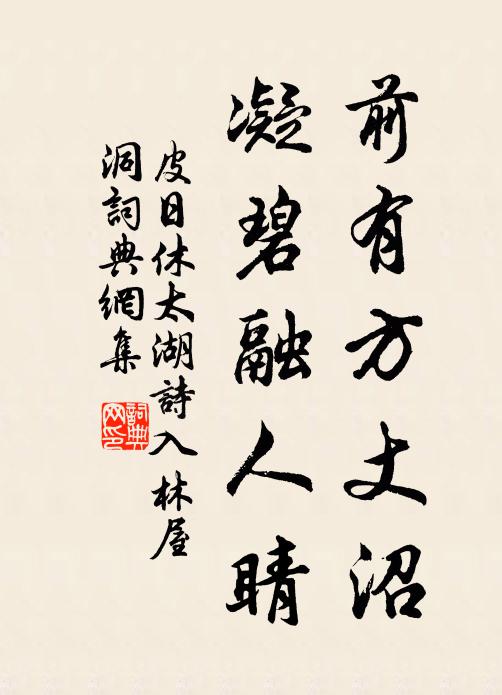 前有方丈沼
凝碧融人睛
皮日休太湖詩入林屋
洞詞典網集
詞典網印